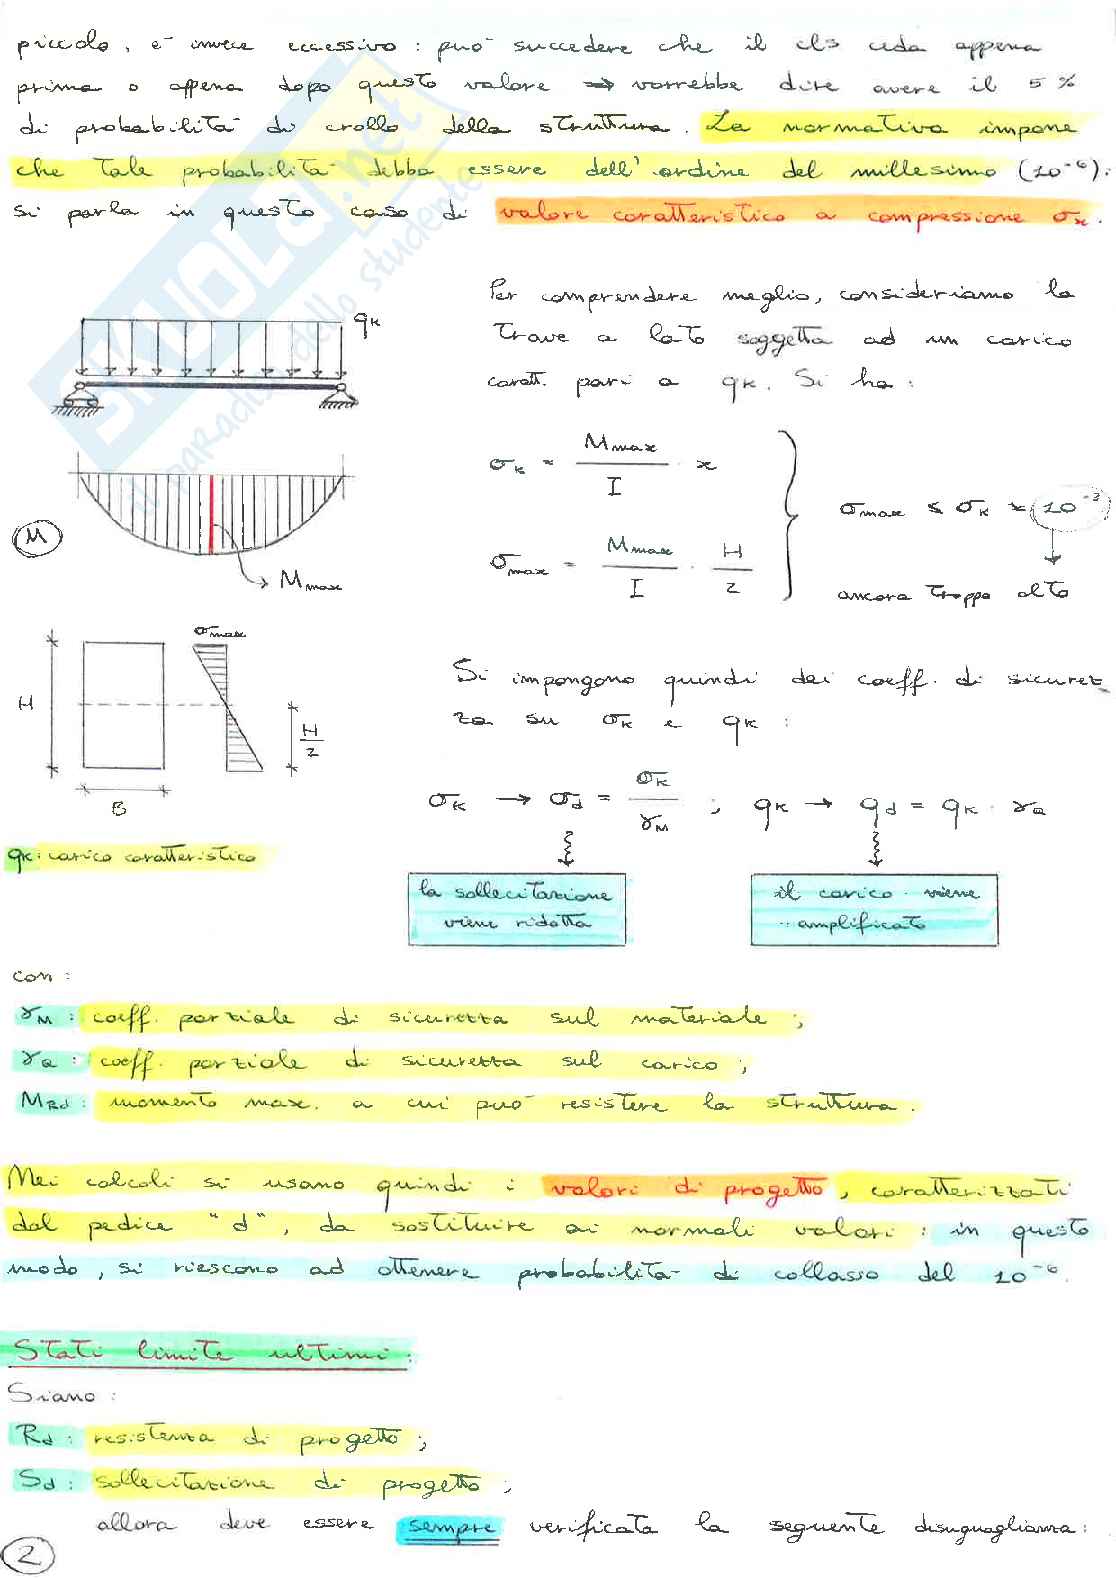 piccolo, è invece eccessivo: può succedere che il cls ceda appena
prima o appena dopo questo valore → vorrebbe dire avere il 5%
di probabilità di crollo della struttura. La normativa impone
che tale probabilità debba essere dell'ordine del millesimo (10⁻⁶):
si parla in questo caso di valore caratteristico a compressione σk.
SKUOLA.net
il paradiso dello studente
Per comprendere meglio, consideriamo la
trave a lato soggetta ad un carico
caratt. pari a qk. Si ha:
qk
σk = Mmax / I · x
σmax = Mmax / I · H / 2
σmax ≤ σk × 10⁻³
ancora troppo alto
M
Mmax
σmax
H
H / 2
B
Si impongono quindi dei coeff. di sicurez-
za su σk e qk:
σk → σd = σk / γM ; qk → qd = qk · γQ
qk: carico caratteristico
la sollecitazione
viene ridotta
il carico viene
amplificato
con:
γM: coeff. parziale di sicurezza sul materiale;
γQ: coeff. parziale di sicurezza sul carico;
MRd: momento max. a cui può resistere la struttura.
Nei calcoli si usano quindi i valori di progetto, caratterizzati
dal pedice "d", da sostituire ai normali valori: in questo
modo, si riescono ad ottenere probabilità di collasso del 10⁻⁶.
Stati limite ultimi:
Siano:
Rd: resistenza di progetto;
Sd: sollecitazione di progetto;
allora deve essere sempre verificata la seguente disuguaglianza:
2